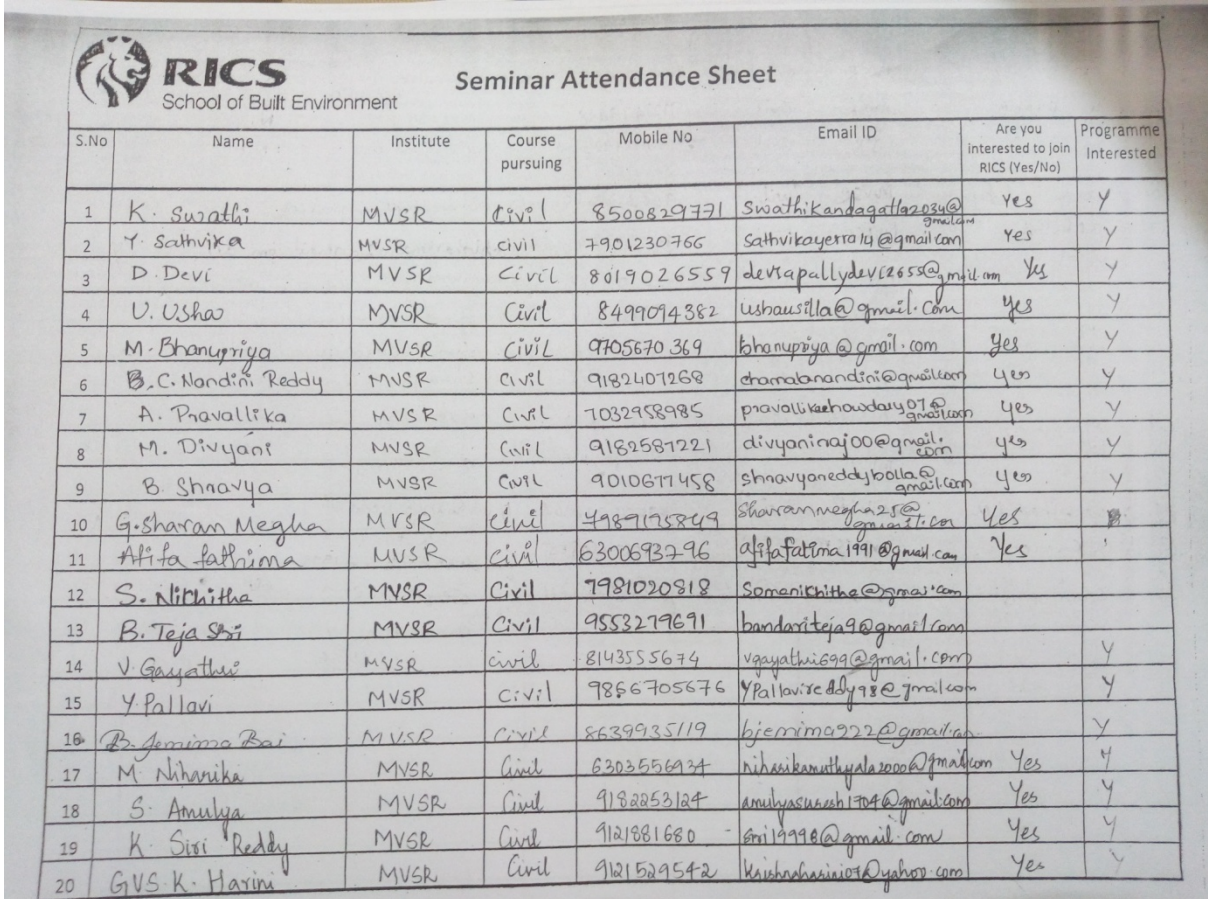 RICS
School of Built Environment
Seminar Attendance Sheet
S.No Name Institute Course pursuing Mobile No Email ID Are you interested to join RICS (Yes/No) Programme Interested
1 K. Swathi MVSR Civil 8500829771 Swathikandagatla2034@gmail.com Yes Y
2 Y. Sathvika MVSR civil 7901230766 Sathvikayerra14@gmail.com Yes Y
3 D. Devi MVSR Civil 8019026559 Yes Y
4 U. Usha MVSR Civil 8499094382 ushausilla@gmail.com yes Y
5 M. Bhanupriya MVSR Civil 9705670369 bhanupriya@gmail.com yes Y
6 B.C. Nandini Reddy MVSR Civil 9182407268 chamalanandini@gmail.com yes Y
7 A. Pravallika MVSR Civil 7032958985 yes Y
8 M. Divyani MVSR Civil 9182587221 divyaniraj00@gmail.com yes Y
9 B. Shravya MVSR Civil 9010677458 shravyareddybolla@gmail.com yes Y
10 G. Sharan Megha MVSR civil Sharanmegha25@gmail.com Yes
11 Afifa fathima MVSR civil 6300693796 afifafatima1991@gmail.com Yes
12 S. Nikhitha MVSR Civil 7981020818
13 B. Teja Sri MVSR Civil 9553279691 bandariteja9@gmail.com
14 V. Gayathri MVSR civil 8143555674 vgayathri699@gmail.com Y
15 Y. Pallavi MVSR Civil 9866705676 YPallavireddy98@gmail.com Y
16 B. Jemima Bai MVSR Civil 8639935119 bjemima922@gmail.com Y
17 M. Niharika MVSR Civil 6303556934 niharikamuthyala2000@gmail.com Yes Y
18 S. Amulya MVSR Civil 9182253124 amulyasuresh1704@gmail.com Yes Y
19 K. Siri Reddy MVSR Civil 9121881680 Yes Y
20 GVS.K. Harini MVSR Civil 9121529542 krishnaharini07@yahoo.com Yes Y